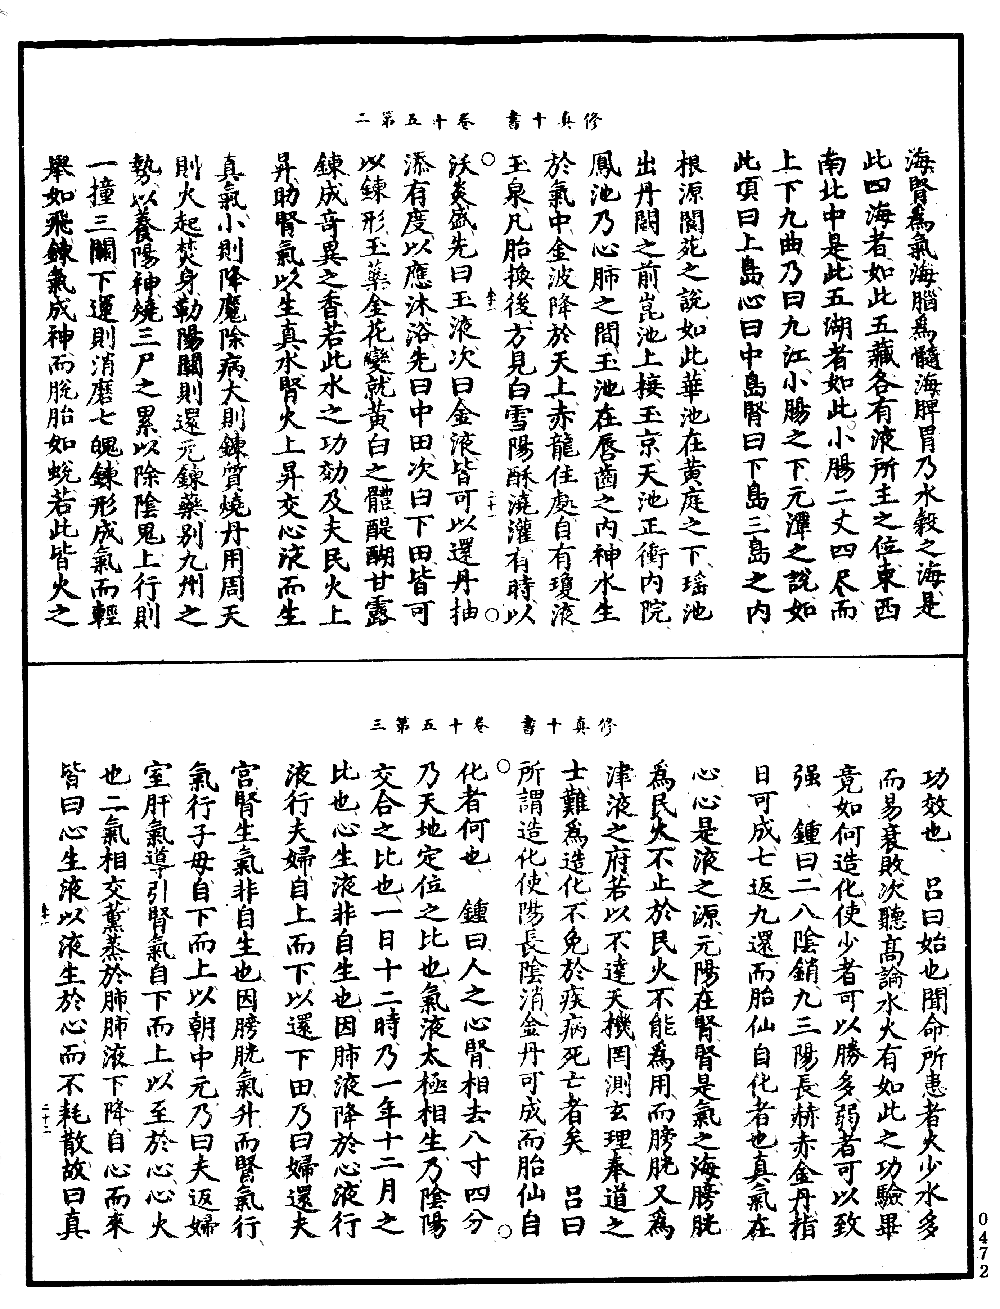 修真十書　卷十五第二
海腎爲氣海腦爲髓海脾胃乃水穀之海是
此四海者如此五藏各有液所主之位東西
南北中是此五湖者如此小腸二丈四尺而
上下九曲乃曰九江小腸之下元潭之說如
此項曰上島心曰中島腎曰下島三島之内
根源閬苑之說如此華池在黃庭之下瑶池
出丹闕之前崑池上接玉京天池正衝内院
鳳池乃心肺之間玉池在唇齒之内神水生
於氣中金波降於天上赤龍住處自有瓊液
玉泉凡胎換後方見白雪陽酥澆灌有時以
沃炎盛先曰玉液次曰金液皆可以還丹抽
添有度以應沐浴先曰中田次曰下田皆可
以鍊形玉藥金花變就黃白之體醍醐甘露
鍊成奇異之香若此水之功効及夫民火上
昇助腎氣以生真水腎火上昇交心液而生
真氣小則降魔除病大則鍊質燒丹用周天
則火起焚身勒陽關則還元鍊藥别九州之
勢以養陽神燒三尸之累以除陰鬼上行則
一撞三關下運則消磨七魄鍊形成氣而輕
舉如飛鍊氣成神而脫胎如蛻若此皆火之
修真十書　卷十五第三
功效也　吕曰始也聞命所患者火少水多
而易衰敗次聽高論水火有如此之功驗畢
竟如何造化使少者可以勝多弱者可以致
强　鍾曰二八陰銷九三陽長赫赤金丹指
日可成七返九還而胎仙自化者也真氣在
心心是液之源元陽在腎腎是氣之海膀胱
爲民火不止於民火不能爲用而膀胱又爲
津液之府若以不達天機罔測玄理奉道之
士難爲造化不免於疾病死亡者矣　吕曰
所謂造化使陽長陰消金丹可成而胎仙自
化者何也　鍾曰人之心腎相去八寸四分
乃天地定位之比也氣液太極相生乃陰陽
交合之比也一日十二時乃一年十二月之
比也心生液非自生也因肺液降於心液行
液行夫婦自上而下以還下田乃曰婦還夫
宫腎生氣非自生也因膀胱氣升而腎氣行
氣行子母自下而上以朝中元乃曰夫返婦
室肝氣導引腎氣自下而上以至於心心火
也二氣相交薰蒸於肺肺液下降自心而來
皆曰心生液以液生於心而不耗散故曰真
0472